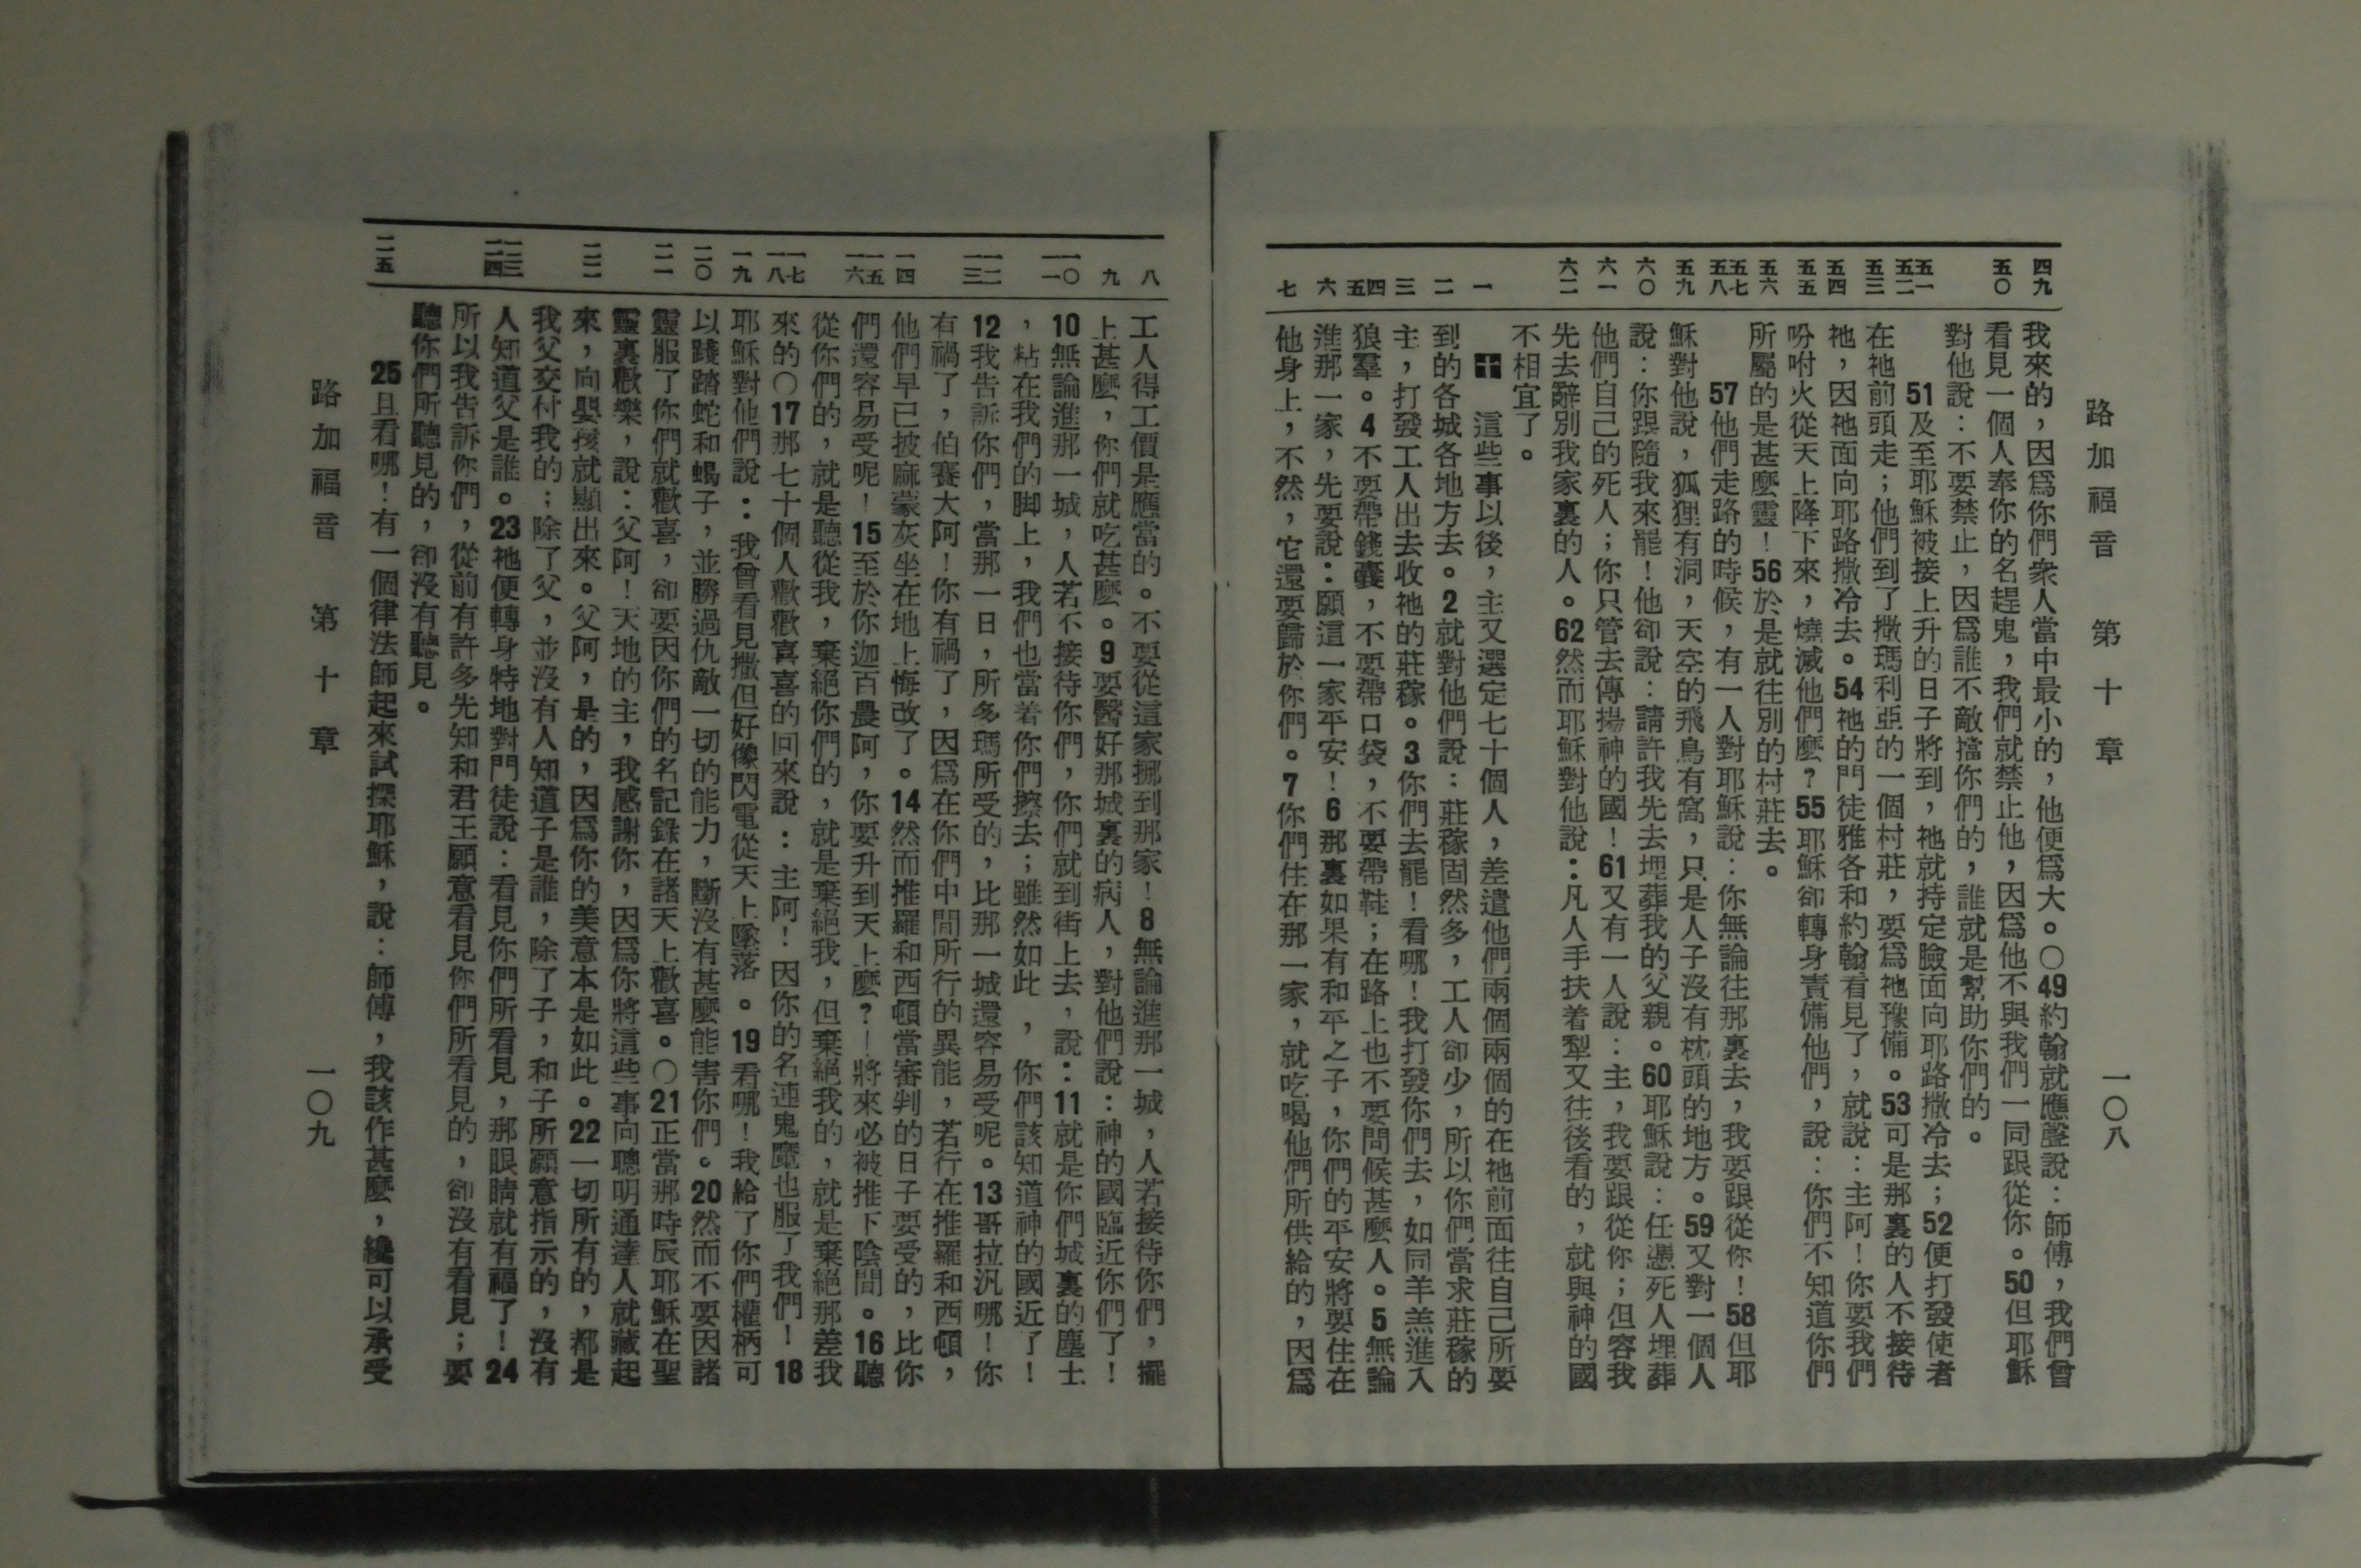 路加福音 第十章 一〇八
四九 五〇 五一 五二 五三 五四 五五 五六 五七 五八 五九 六〇 六一 六二 一 二 三 四 五 六 七
我來的，因爲你們衆人當中最小的，他便爲大。○49約翰就應聲說：師傅，我們曾
看見一個人奉你的名趕鬼，我們就禁止他，因爲他不與我們一同跟從你。50但耶穌
對他說：不要禁止，因爲誰不敵擋你們的，誰就是幫助你們的。
51及至耶穌被接上升的日子將到，祂就持定臉面向耶路撒冷去；52便打發使者
在祂前頭走；他們到了撒瑪利亞的一個村莊，要爲祂豫備。53可是那裏的人不接待
祂，因祂面向耶路撒冷去。54祂的門徒雅各和約翰看見了，就說：主阿！你要我們
吩咐火從天上降下來，燒滅他們麼？55耶穌卻轉身責備他們，說：你們不知道你們
所屬的是甚麼靈！56於是就往別的村莊去。
57他們走路的時候，有一人對耶穌說：你無論往那裏去，我要跟從你！58但耶
穌對他說，狐狸有洞，天空的飛鳥有窩，只是人子沒有枕頭的地方。59又對一個人
說：你跟隨我來罷！他卻說：請許我先去埋葬我的父親。60耶穌說：任憑死人埋葬
他們自己的死人；你只管去傳揚神的國！61又有一人說：主，我要跟從你；但容我
先去辭別我家裏的人。62然而耶穌對他說：凡人手扶着犁又往後看的，就與神的國
不相宜了。
十 這些事以後，主又選定七十個人，差遣他們兩個兩個的在祂前面往自己所要
到的各城各地方去。2就對他們說：莊稼固然多，工人卻少，所以你們當求莊稼的
主，打發工人出去收祂的莊稼。3你們去罷！看哪！我打發你們去，如同羊羔進入
狼羣。4不要帶錢囊，不要帶口袋，不要帶鞋；在路上也不要問候甚麼人。5無論
進那一家，先要說：願這一家平安！6那裏如果有和平之子，你們的平安將要住在
他身上，不然，它還要歸於你們。7你們住在那一家，就吃喝他們所供給的，因爲
八 九 一〇 一一 一二 一三 一四 一五 一六 一七 一八 一九 二〇 二一 二二 二三 二四 二五
工人得工價是應當的。不要從這家挪到那家！8無論進那一城，人若接待你們，擺
上甚麼，你們就吃甚麼。9要醫好那城裏的病人，對他們說：神的國臨近你們了！
10無論進那一城，人若不接待你們，你們就到街上去，說：11就是你們城裏的塵土
，粘在我們的脚上，我們也當着你們擦去；雖然如此，你們該知道神的國近了！
12我告訴你們，當那一日，所多瑪所受的，比那一城還容易受呢。13哥拉汎哪！你
有禍了，伯賽大阿！你有禍了，因爲在你們中間所行的異能，若行在推羅和西頓，
他們早已披麻蒙灰坐在地上悔改了。14然而推羅和西頓當審判的日子要受的，比你
們還容易受呢！15至於你迦百農阿，你要升到天上麼？—將來必被推下陰間。16聽
從你們的，就是聽從我，棄絕你們的，就是棄絕我，但棄絕我的，就是棄絕那差我
來的○17那七十個人歡歡喜喜的回來說：主阿！因你的名連鬼魔也服了我們！18
耶穌對他們說：我曾看見撒但好像閃電從天上墜落。19看哪！我給了你們權柄可
以踐踏蛇和蝎子，並勝過仇敵一切的能力，斷沒有甚麼能害你們。20然而不要因諸
靈服了你們就歡喜，卻要因你們的名記錄在諸天上歡喜。○21正當那時辰耶穌在聖
靈裏歡樂，說：父阿！天地的主，我感謝你，因爲你將這些事向聰明通達人就藏起
來，向嬰孩就顯出來。父阿，是的，因爲你的美意本是如此。22一切所有的，都是
我父交付我的；除了父，並沒有人知道子是誰，除了子，和子所願意指示的，沒有
人知道父是誰。23祂便轉身特地對門徒說：看見你們所看見，那眼睛就有福了！24
所以我告訴你們，從前有許多先知和君王願意看見你們所看見的，卻沒有看見；要
聽你們所聽見的，卻沒有聽見。
25且看哪！有一個律法師起來試探耶穌，說：師傅，我該作甚麼，纔可以承受
路加福音 第十章 一〇九